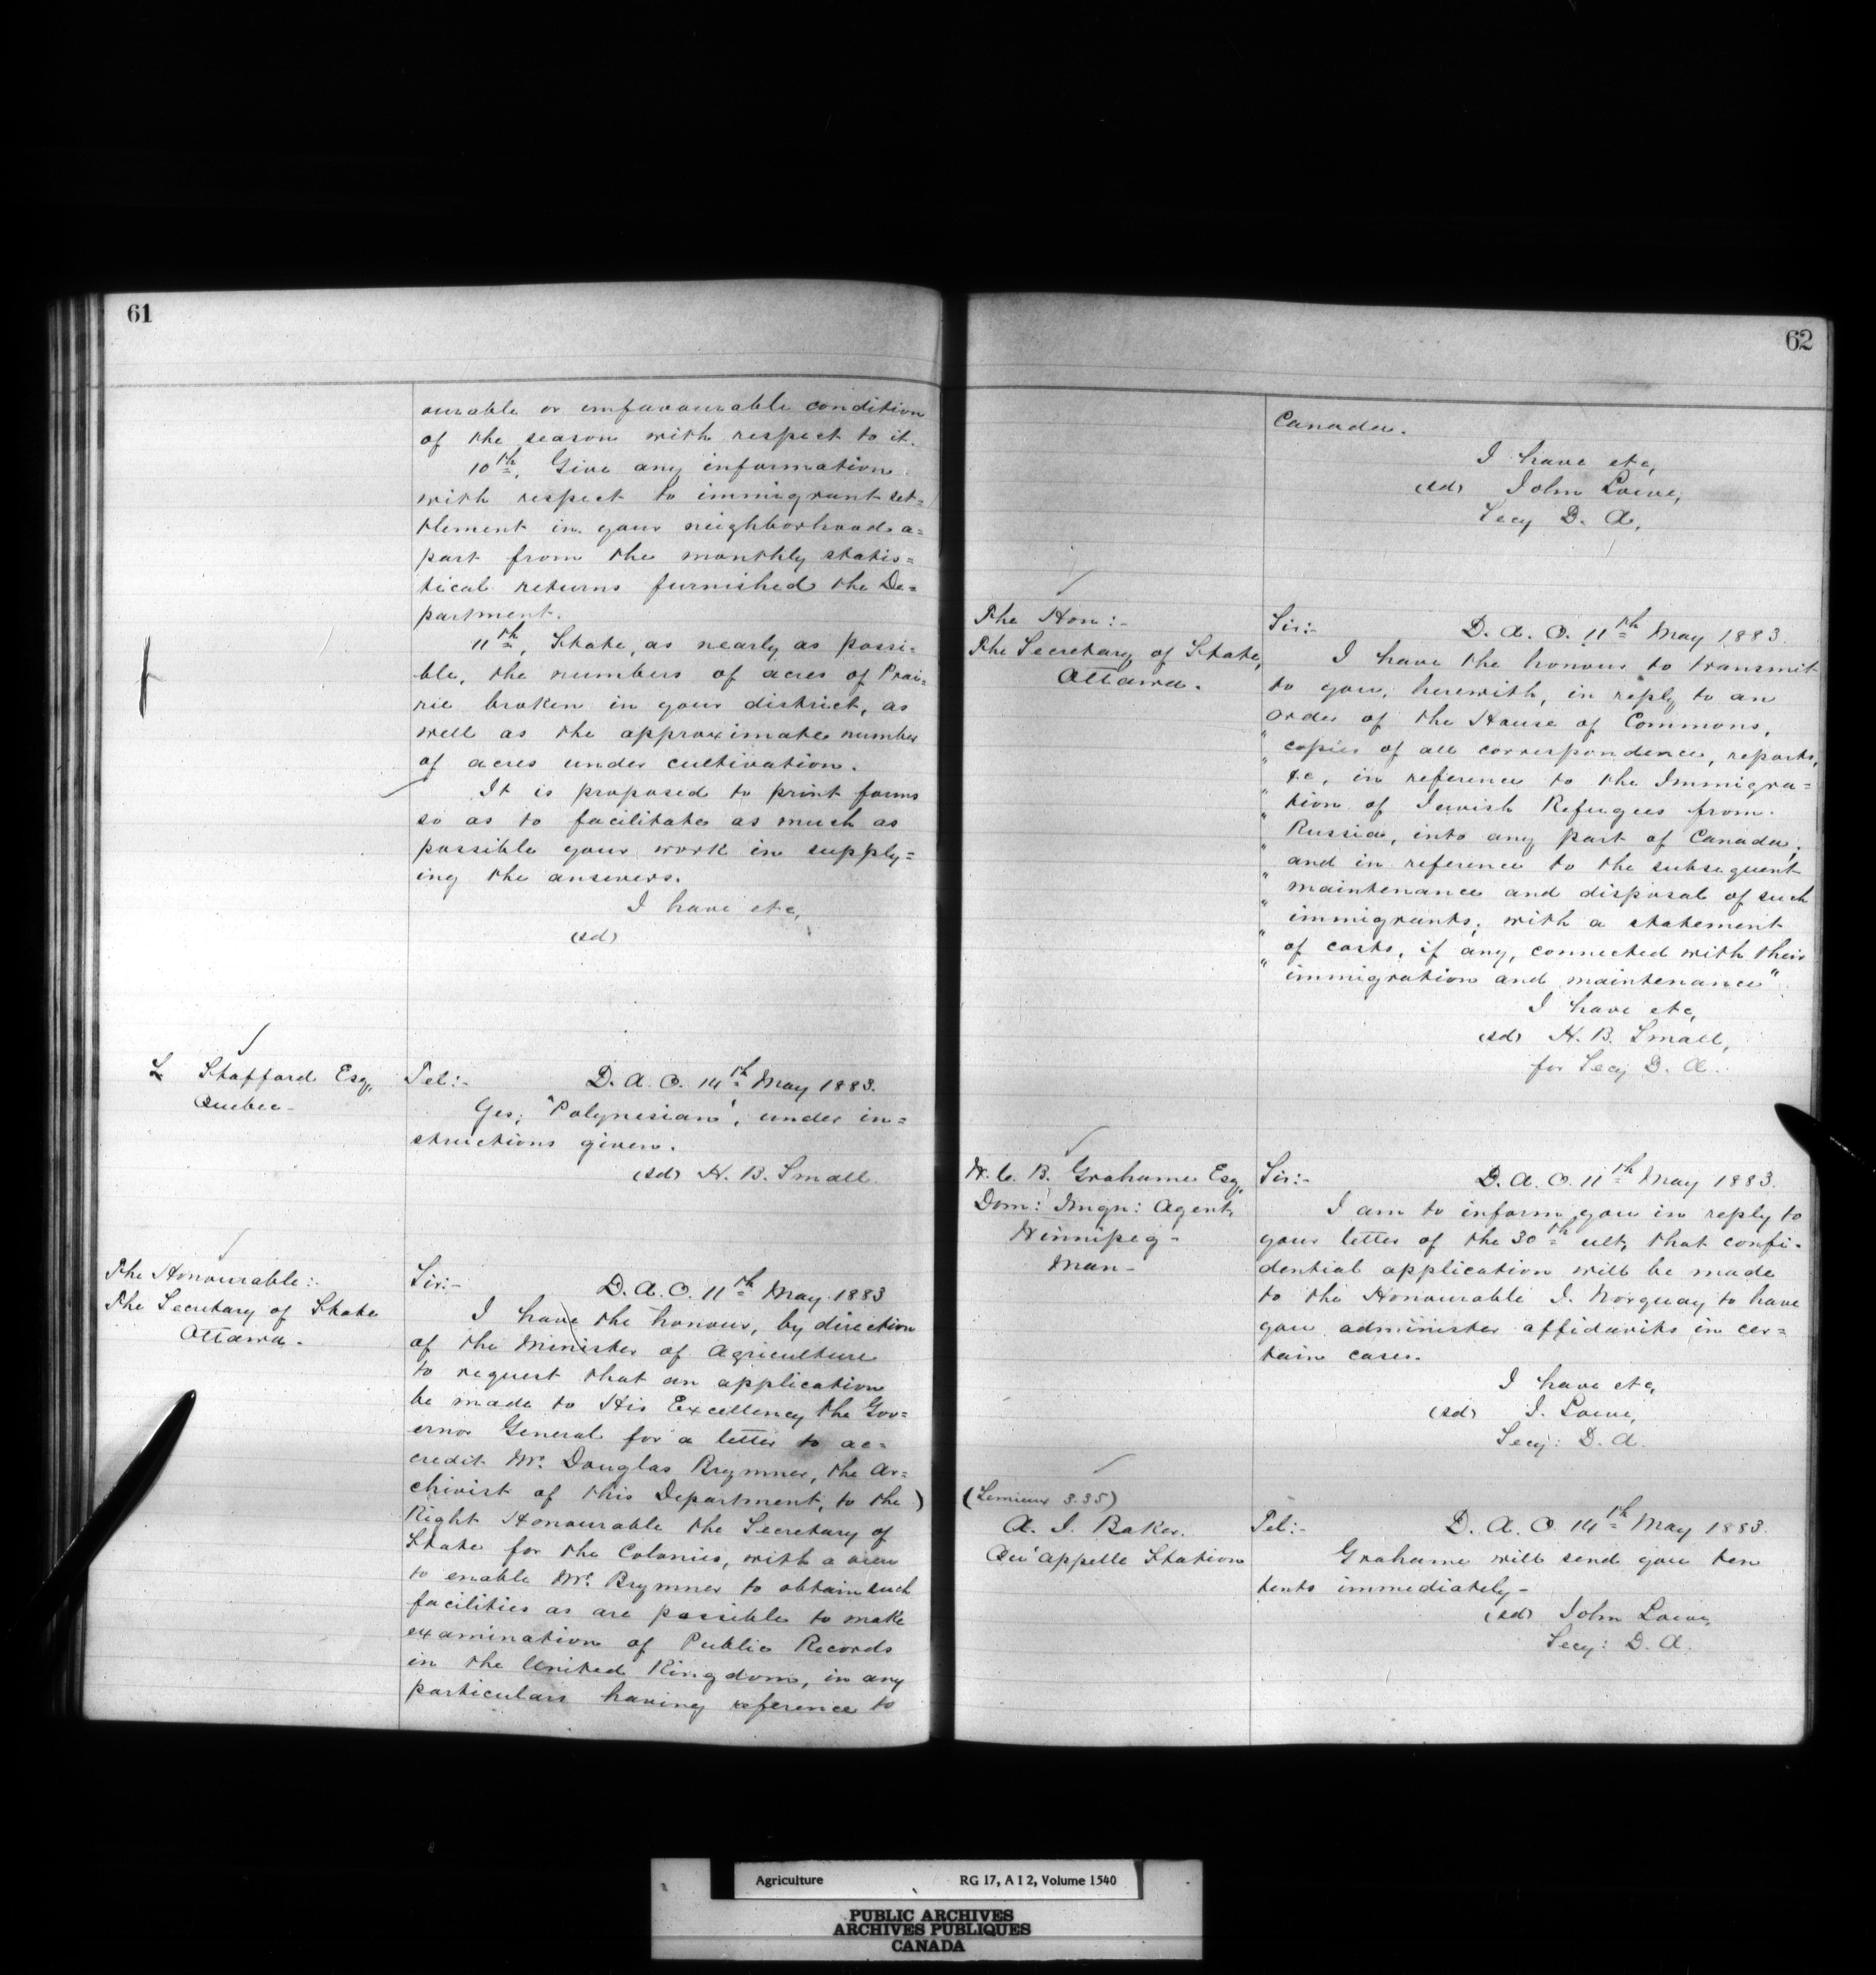 61
ourable or unfavourable condition
of the season with respect to it.
10th, Give any information
with respect to immigrant set=
tlement in your neighborhood a=
part from the monthly statis=
tical returns furnished the De=
partment.
11th, State, as nearly as possi=
ble, the numbers of acres of Prai=
rie broken in your district, as
well as the approximate number
of acres under cultivation.
It is proposed to print forms
so as to facilitate as much as
possible your work in supply=
ing the answers.
I have etc,
(sd)
L Stafford Esq,
Quebec-
Tel:-
D. A. O. 14th May 1883.
Yes; "Polynesian", under in=
structions given.
(sd) H. B. Small
The Honourable:-
The Secretary of State
Ottawa.
Sir:-
D. A. O. 11th May 1883
I have the honour, by direction
of the Minister of Agriculture
to request that an application
be made to His Excellency the Gov=
ernor General for a letter to ac=
credit Mr. Douglas Brymner, the Ar=
chivist of this Department, to the )
Right Honourable the Secretary of
State for the Colonies, with a view
to enable Mr. Brymner to obtain such
facilities as are possible to make
examination of Public Records
in the United Kingdom, in any
particulars having reference to
62
Canada.
I have etc,
(sd) John Lowe,
Secy D. A,
The Hon:-
The Secretary of State,
Ottawa.
Sir:-
D. A. O. 11th May 1883.
I have the honour to transmit
to you, herewith, in reply to an
order of the House of Commons,
" copies of all correspondence, reports,
" &c, in reference to the Immigra=
" tion of Jewish Refugees from
" Russia, into any part of Canada;
" and in reference to the subsequent
" maintenance and disposal of such
" immigrants; with a statement
" of costs, if any, connected with their
" immigration and maintenance"
I have etc,
(sd) H. B. Small,
for Secy D. A.
W. C. B. Grahame Esq,
Dom: Imgn: Agent,
Winnipeg-
Man-
Sir:-
D. A. O. 11th May 1883.
I am to inform you in reply to
your letter of the 30th ult, that confi-
dential application will be made
to the Honourable J. Norquay to have
you administer affidavits in cer=
tain cases.
I have etc,
(sd) J. Lowe,
Secy: D. A.
(Lemieux 3.35)
A. J. Baker.
Qu'appelle Station
Tel:-
D. A. O. 14th May 1883.
Grahame will send you ten
tents immediately-
(sd) John Lowe,
Secy: D. A.
Agriculture RG 17, A I 2, Volume 1540
PUBLIC ARCHIVES
ARCHIVES PUBLIQUES
CANADA